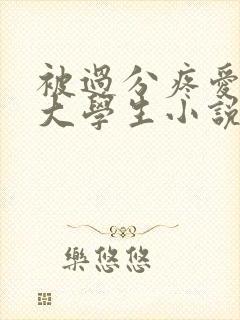 被過分疼愛
大學生小說
樂悠悠